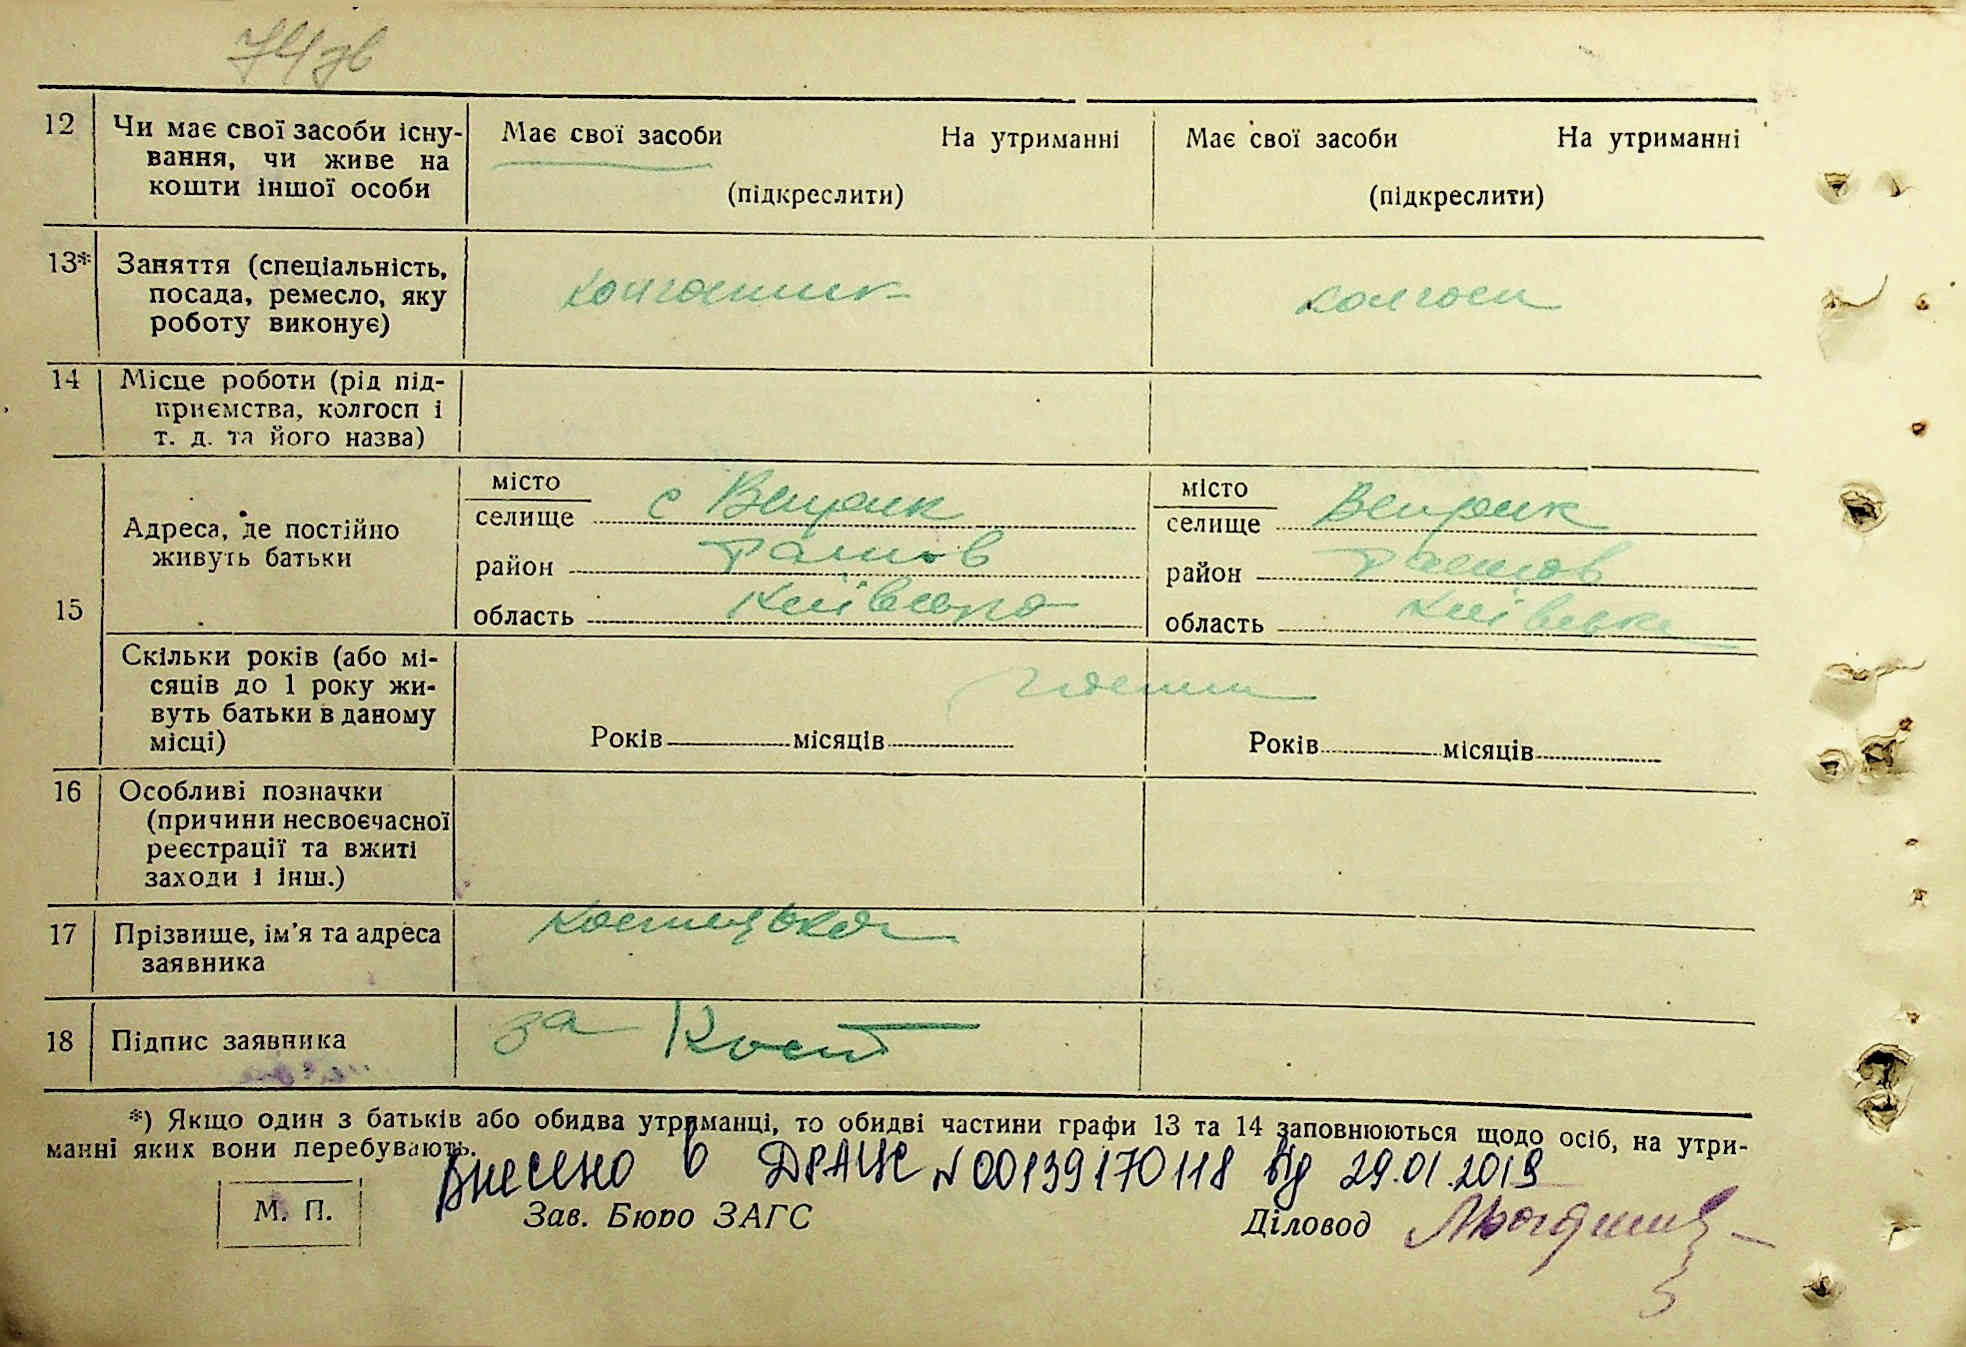 74 зв
12 Чи має свої засоби існу- Має свої засоби На утриманні Має свої засоби На утриманні
вання, чи живе на
кошти іншої особи (підкреслити) (підкреслити)
13* Заняття (спеціальність,
посада, ремесло, яку колгоспник колгосп
роботу виконує)
14 Місце роботи (рід під-
приємства, колгосп і
т. д. та його назва)
місто місто
Адреса, де постійно селище с Веприк селище Веприк
живуть батьки район район
15 область Київська область Київська
Скільки років (або мі-
сяців до 1 року жи-
вуть батьки в даному Років місяців Років місяців
місці)
16 Особливі позначки
(причини несвоєчасної
реєстрації та вжиті
заходи і інш.)
17 Прізвище, ім'я та адреса
заявника
18 Підпис заявника за Кост
*) Якщо один з батьків або обидва утриманці, то обидві частини графи 13 та 14 заповнюються щодо осіб, на утри-
манні яких вони перебувають.
Внесено в ДРАЦС N 00139170118 від 29.01.2019
М. П. Зав. Бюро ЗАГС Діловод